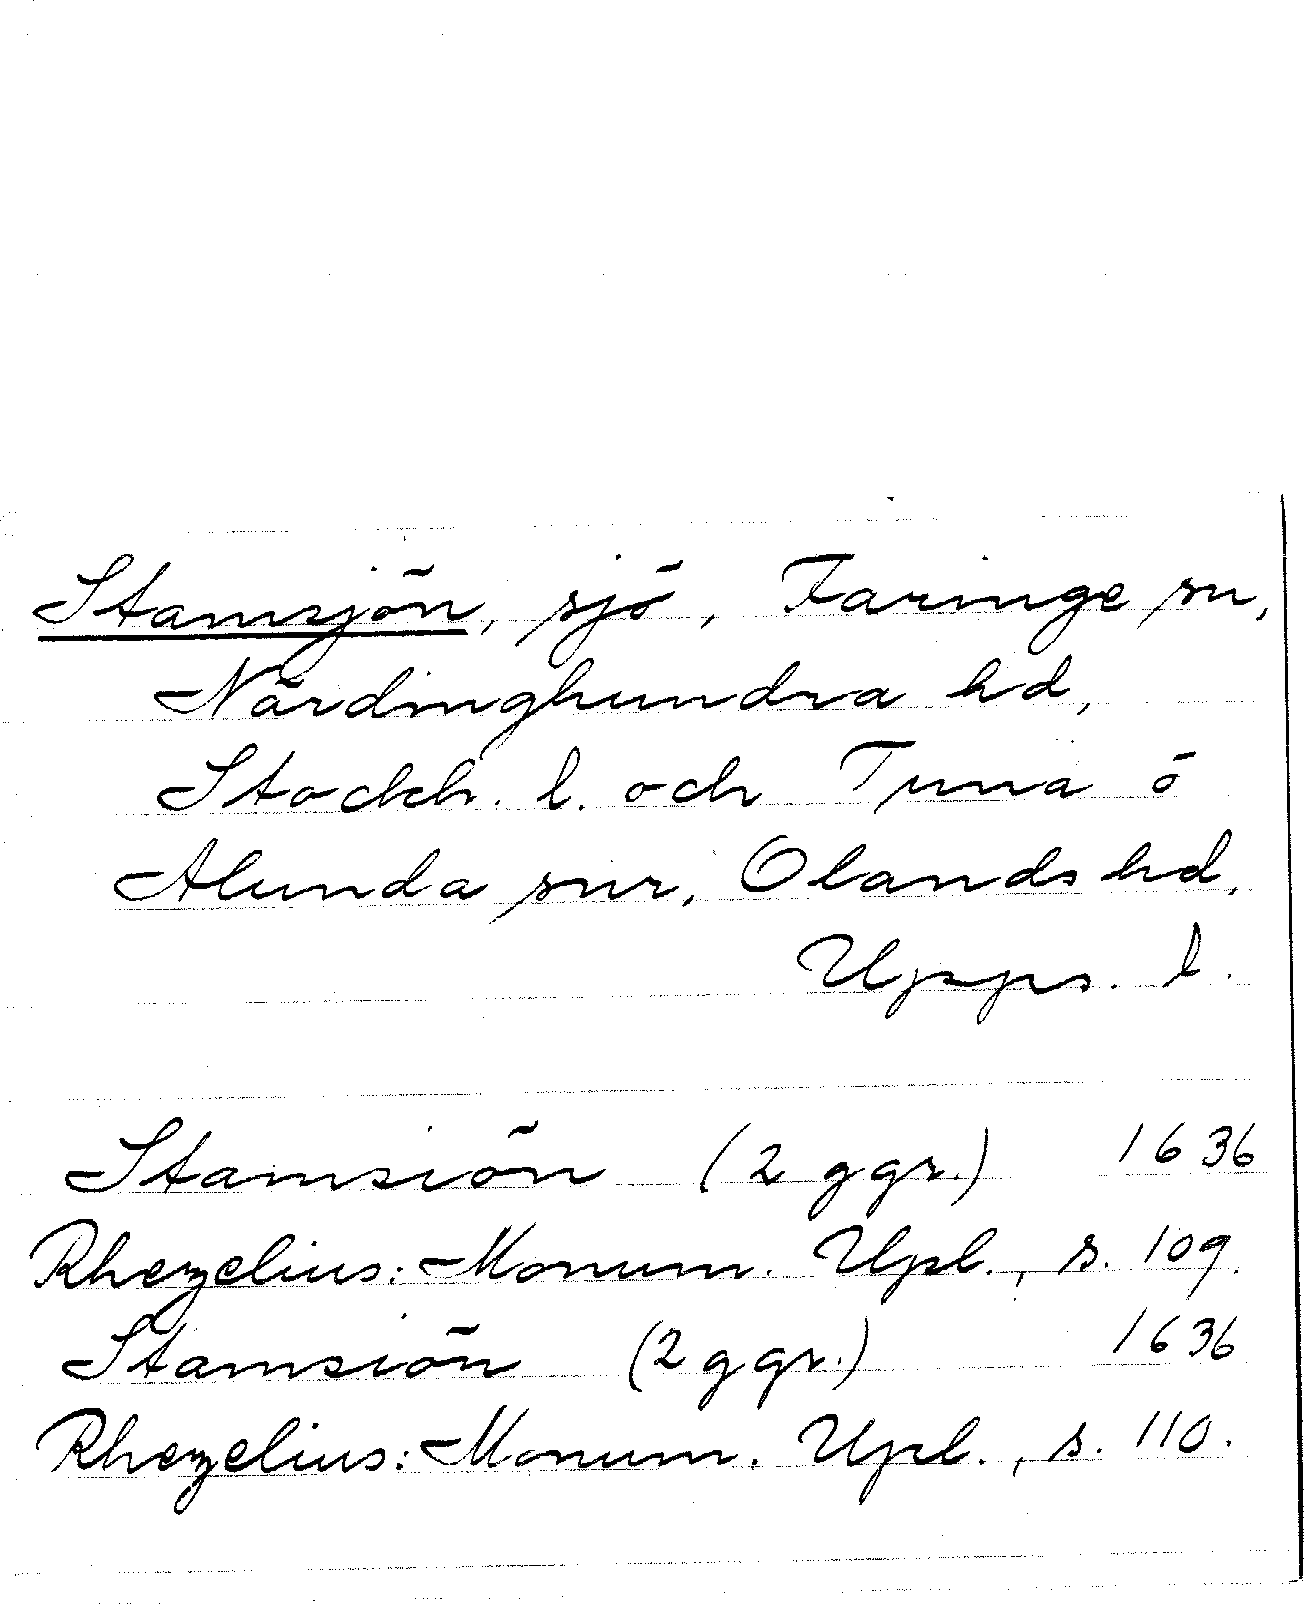 Stamsjön, sjö, Faringe sn,
Närdinghundra hd,
Stockh. l. och Tuna o
Alunda snr, Olands hd,
Upps. l.
Stamsiön (2 ggr.) 1636
Rhezelius: Monum. Upl., s. 109.
Stamsiön (2 ggr.) 1636
Rhezelius: Monum. Upl., s. 110.